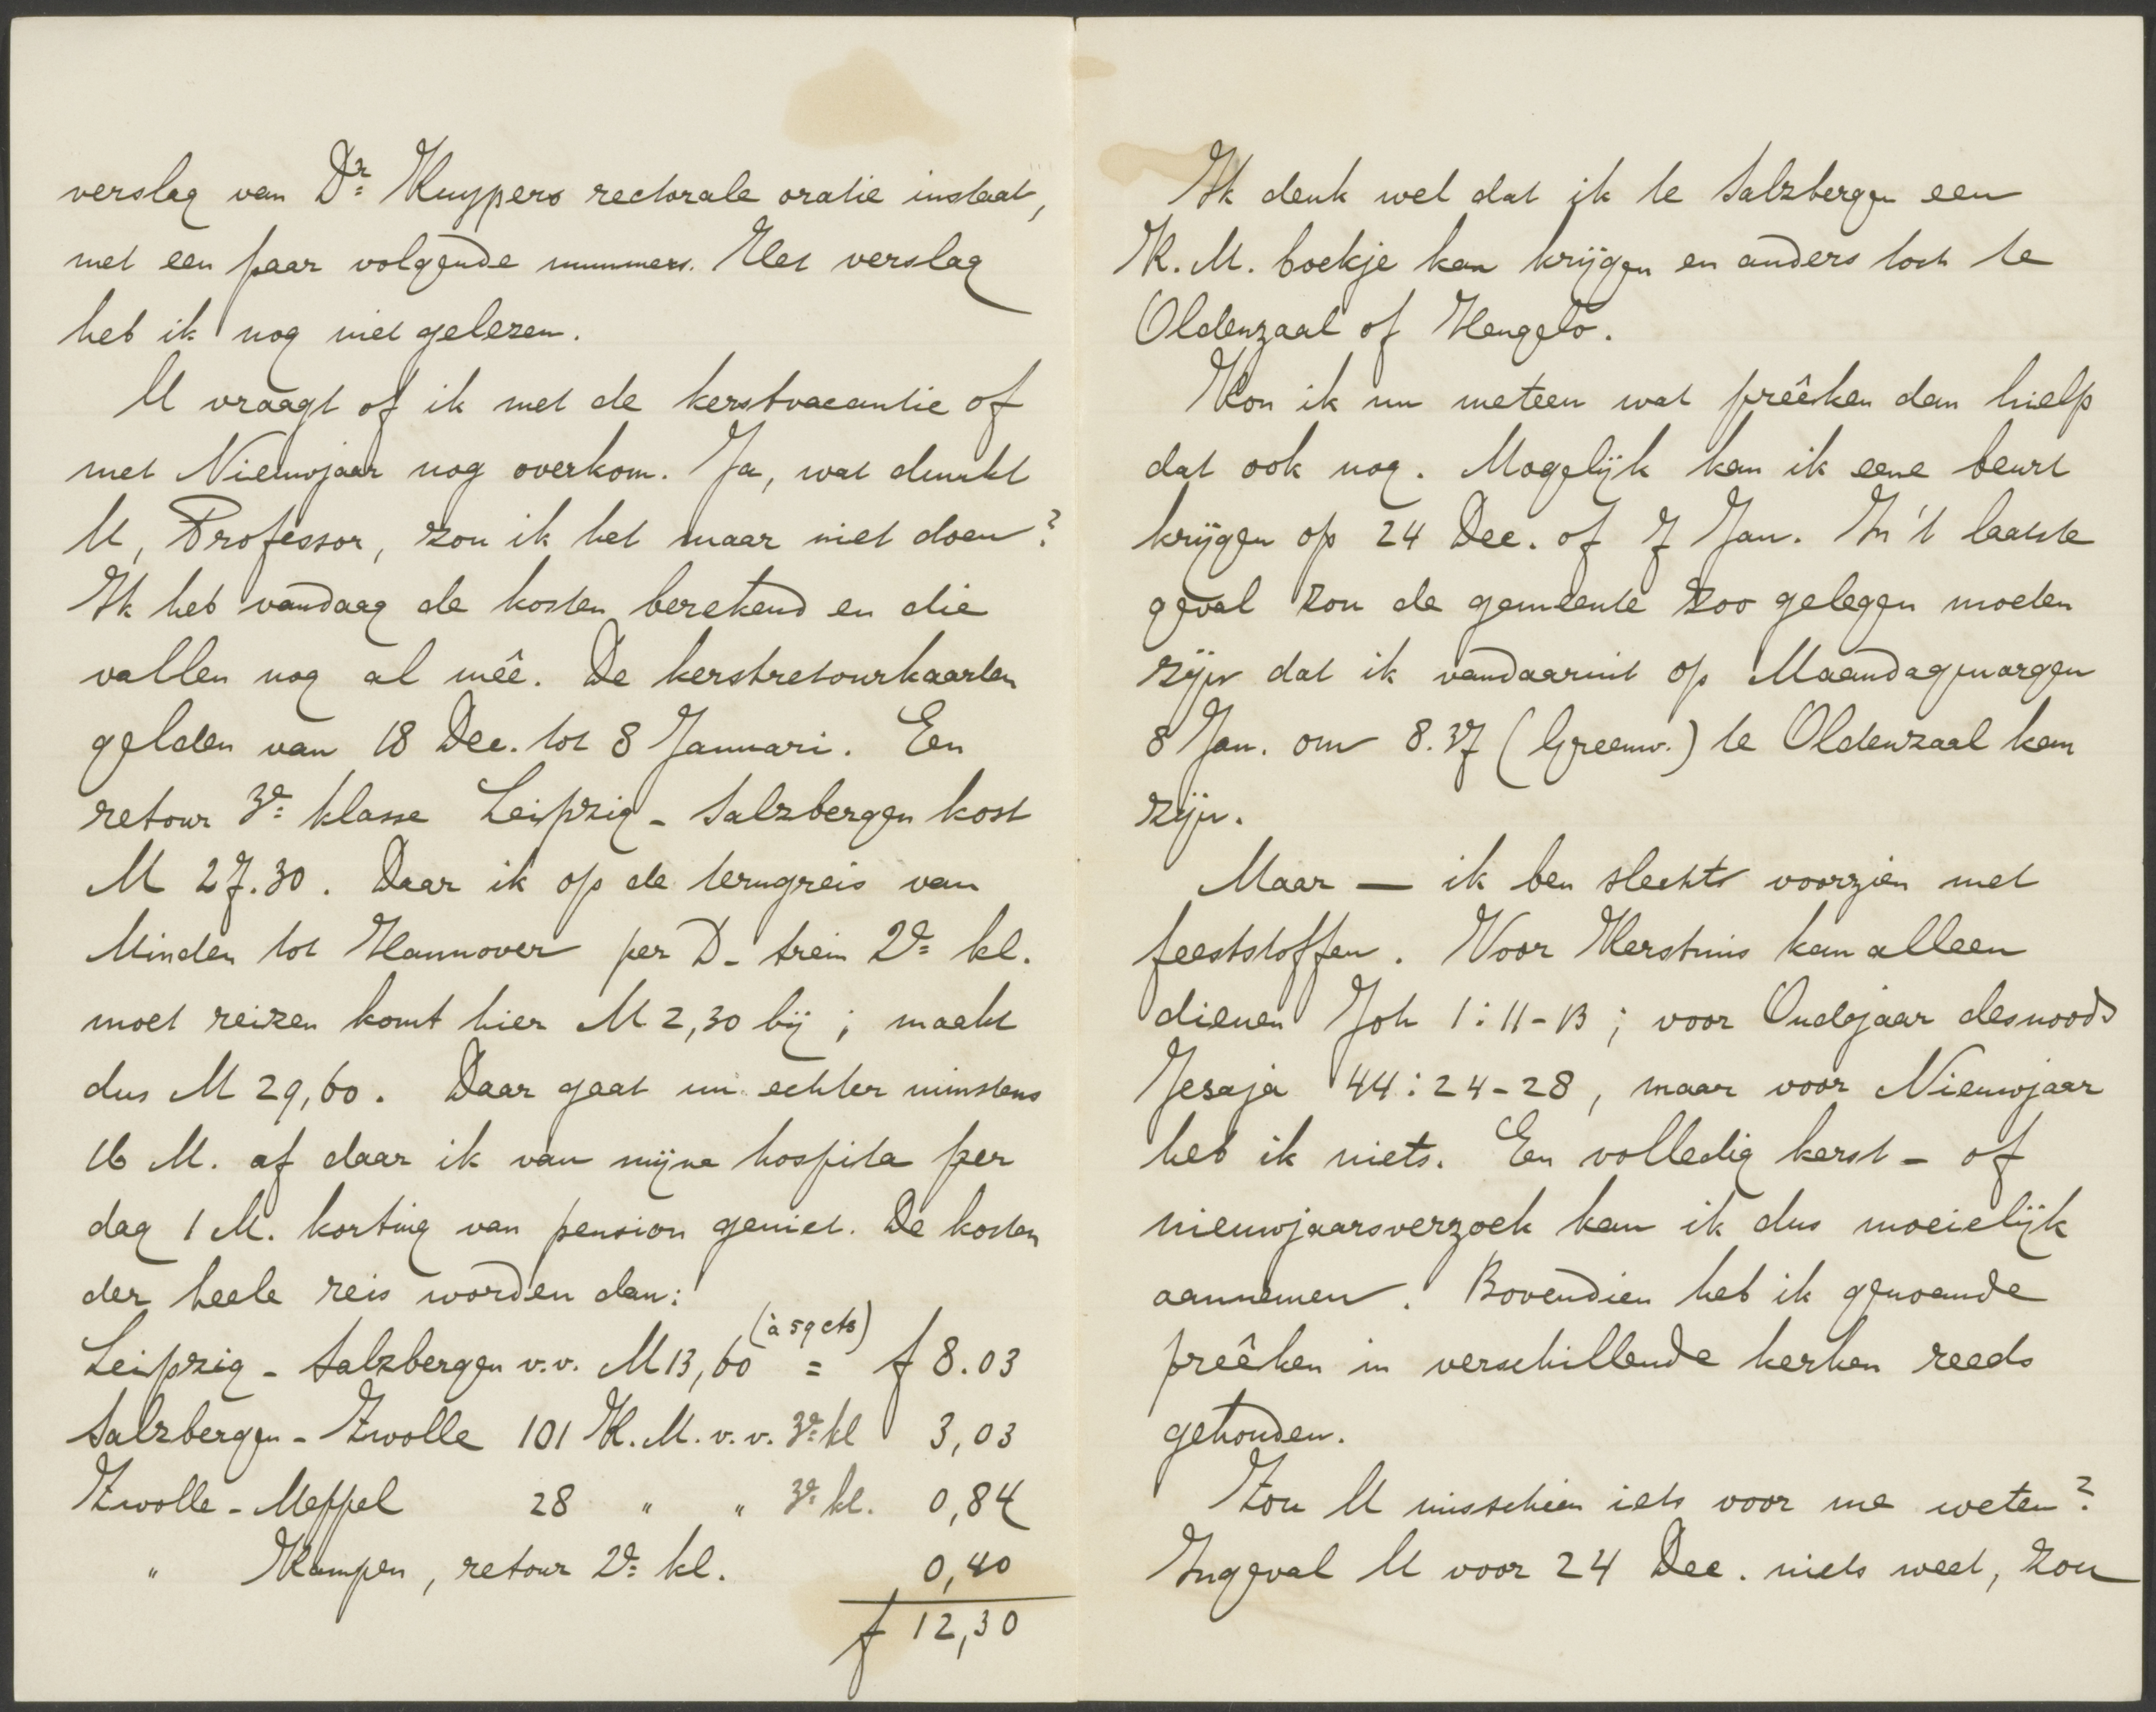 verslag van Dr. Kuypers rectorale oratie instaat,
met een paar volgende nummers. Het verslag
heb ik nog niet gelezen.
U vraagt of ik met de kerstvacantie of
met Nieuwjaar nog overkom. Ja, wat dunkt
U, Professor, zou ik het maar niet doen?
Ik heb vandaag de kosten berekend en die
vallen nog al mêe. De kerstretourkaarten
gelden van 18 Dec. tot 8 Januari. Een
retour 3e klasse Leipzig - Salzbergen kost
M 27.30. Daar ik op de terugreis van
Minden tot Hannover per D-trein 2e kl.
moet reizen komt hier M 2,30 bij; maakt
dus M 29,60. Daar gaat nu echter minstens
16 M. af daar ik van mijne hospita per
dag 1 M. korting van pension geniet. De kosten
der heele reis worden dan:
Leipzig - Salzbergen v.v. M 13,60 (à 59 cts) = f 8.03
Salzbergen - Zwolle 101 K.M. v.v. 3e kl 3,03
Zwolle - Meppel 28 " " 3e kl. 0,84
" Kampen, retour 2e kl. 0,40
f 12,30
Ik denk wel dat ik te Salzbergen een
K.M. boekje kan krijgen en anders toch te
Oldenzaal of Hengelo.
Kon ik nu meteen wat prêeken dan hielp
dat ook nog. Mogelijk kan ik eene beurt
krijgen op 24 Dec. of 7 Jan. In 't laatste
geval zou de gemeente zoo gelegen moeten
zijn dat ik vandaaruit op Maandagmorgen
8 Jan. om 8.37 (Greenw.) te Oldenzaal kan
zijn.
Maar — ik ben slechts voorzien met
feeststoffen. Voor Kerstmis kan alleen
dienen Joh 1:11-13; voor Oudejaar desnoods
Jesaja 44:24-28, maar voor Nieuwjaar
heb ik niets. Een volledig kerst- of
nieuwjaarsverzoek kan ik dus moeielijk
aannemen. Bovendien heb ik genoemde
prêeken in verschillende kerken reeds
gehouden.
Zou U misschien iets voor me weten?
Ingeval U voor 24 Dec. niets weet, zou